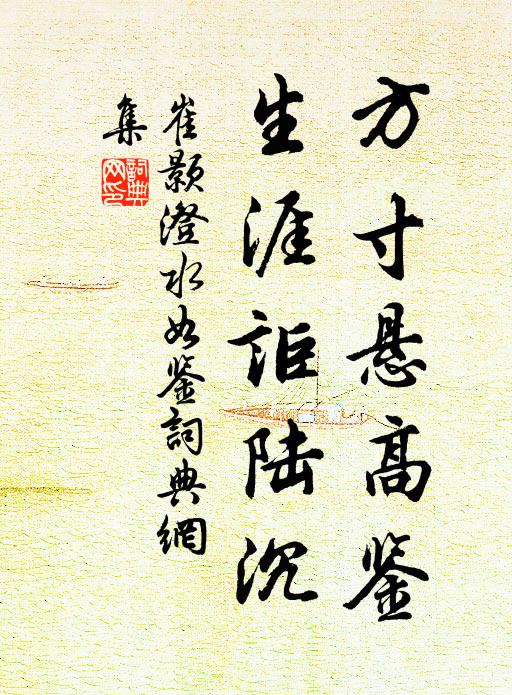 方寸悬高鉴
生涯詎陆沉
崔颢澄水如鉴詞典網
集
詞典網印